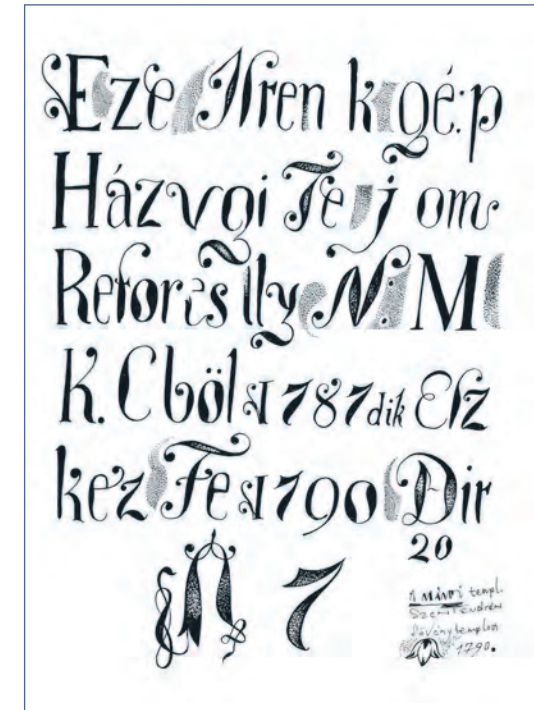 Eze Iſren k gé:p
Házvoi Te j om
Refores lly N M
K. C ből a 787dik Eſz
kez Fe a 1790 Dir
20
7
A MÁNDI templ.
Szentendrén
Sövénytemplom
1790.